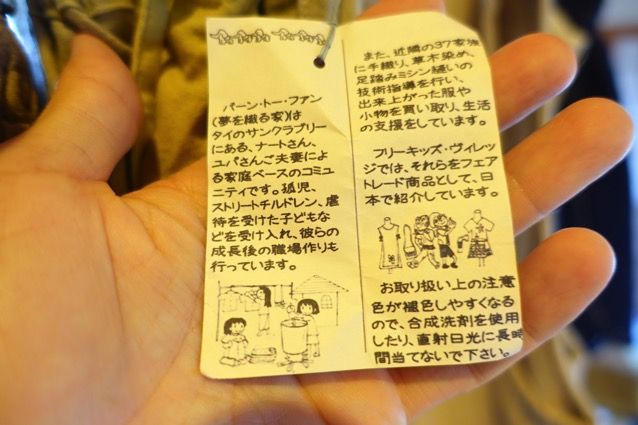 バーン・トー・ファン
(夢を織る家)は
タイのサンクラブリー
にある、ナートさん、
ユパさんご夫妻によ
る家庭ベースのコミュ
ニティです。孤児、
ストリートチルドレン、虐
待を受けた子どもな
どを受け入れ、彼らの
成長後の職場作りも
行っています。
また、近隣の37家族
に手織り、草木染め、
足踏みミシン縫いの
技術指導を行い、
出来上がった服や
小物を買い取り、生活
の支援をしています。
フリーキッズ・ヴィレッ
ジでは、それらをフェア
トレード商品として、日
本で紹介しています。
お取り扱い上の注意
色が褪色しやすくなる
ので、合成洗剤を使用
したり、直射日光に長時
間当てないで下さい。